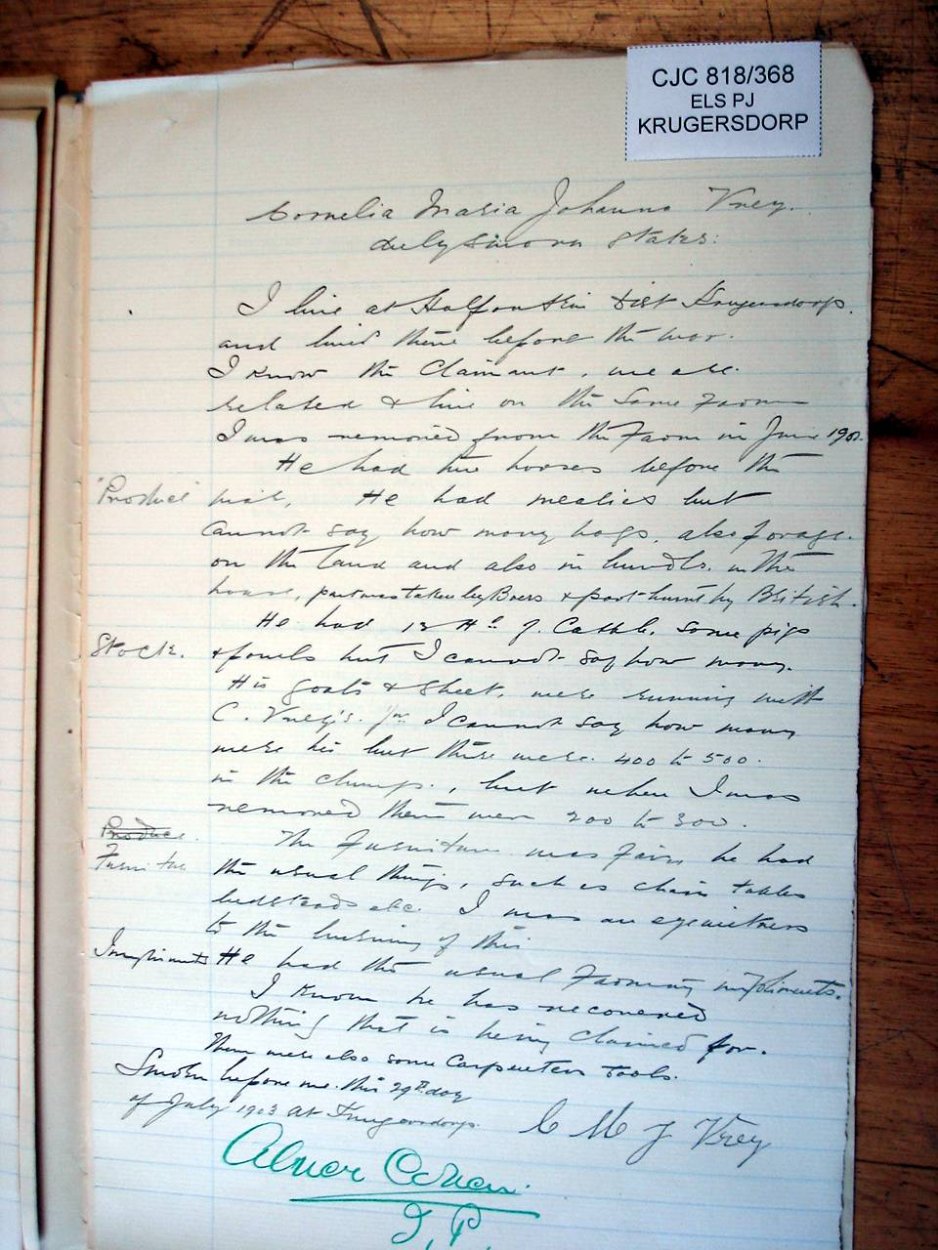 CJC 818/368
ELS PJ
KRUGERSDORP
Cornelia Maria Johanna Vrey.
duly sworn States:
I live at Dist Krugersdorp.
and lived there before the war.
I know the Claimant, we are
related & live on the Same Farm
I was removed from the Farm in June 1901.
He had two houses before the
"Produce" war. He had mealies but
cannot say how many bags, also forage.
on the land and also in bundles in the
house, part was taken by Boers & part burnt by British.
He had 13 Hd of Cattle, some pigs
Stock. & fowls but I cannot say how many.
His goats & Sheep, were running with
C. Vrey's. I cannot say how many
were his but there were 400 to 500.
in the clump, but when I was
removed there were 200 to 300.
Produce. The Furniture was fair, he had
Furniture the usual things, such as chairs tables
bedsteads etc. I was an eyewitness
to the burning of this.
Impliments He had the usual Farming impliments.
I know he has recovered
nothing that is being claimed for.
There were also some Carpenters tools.
Sworn before me this 29th day
of July 1903 at Krugersdorp.
C M J Vrey
Abner Cohen
J.P.